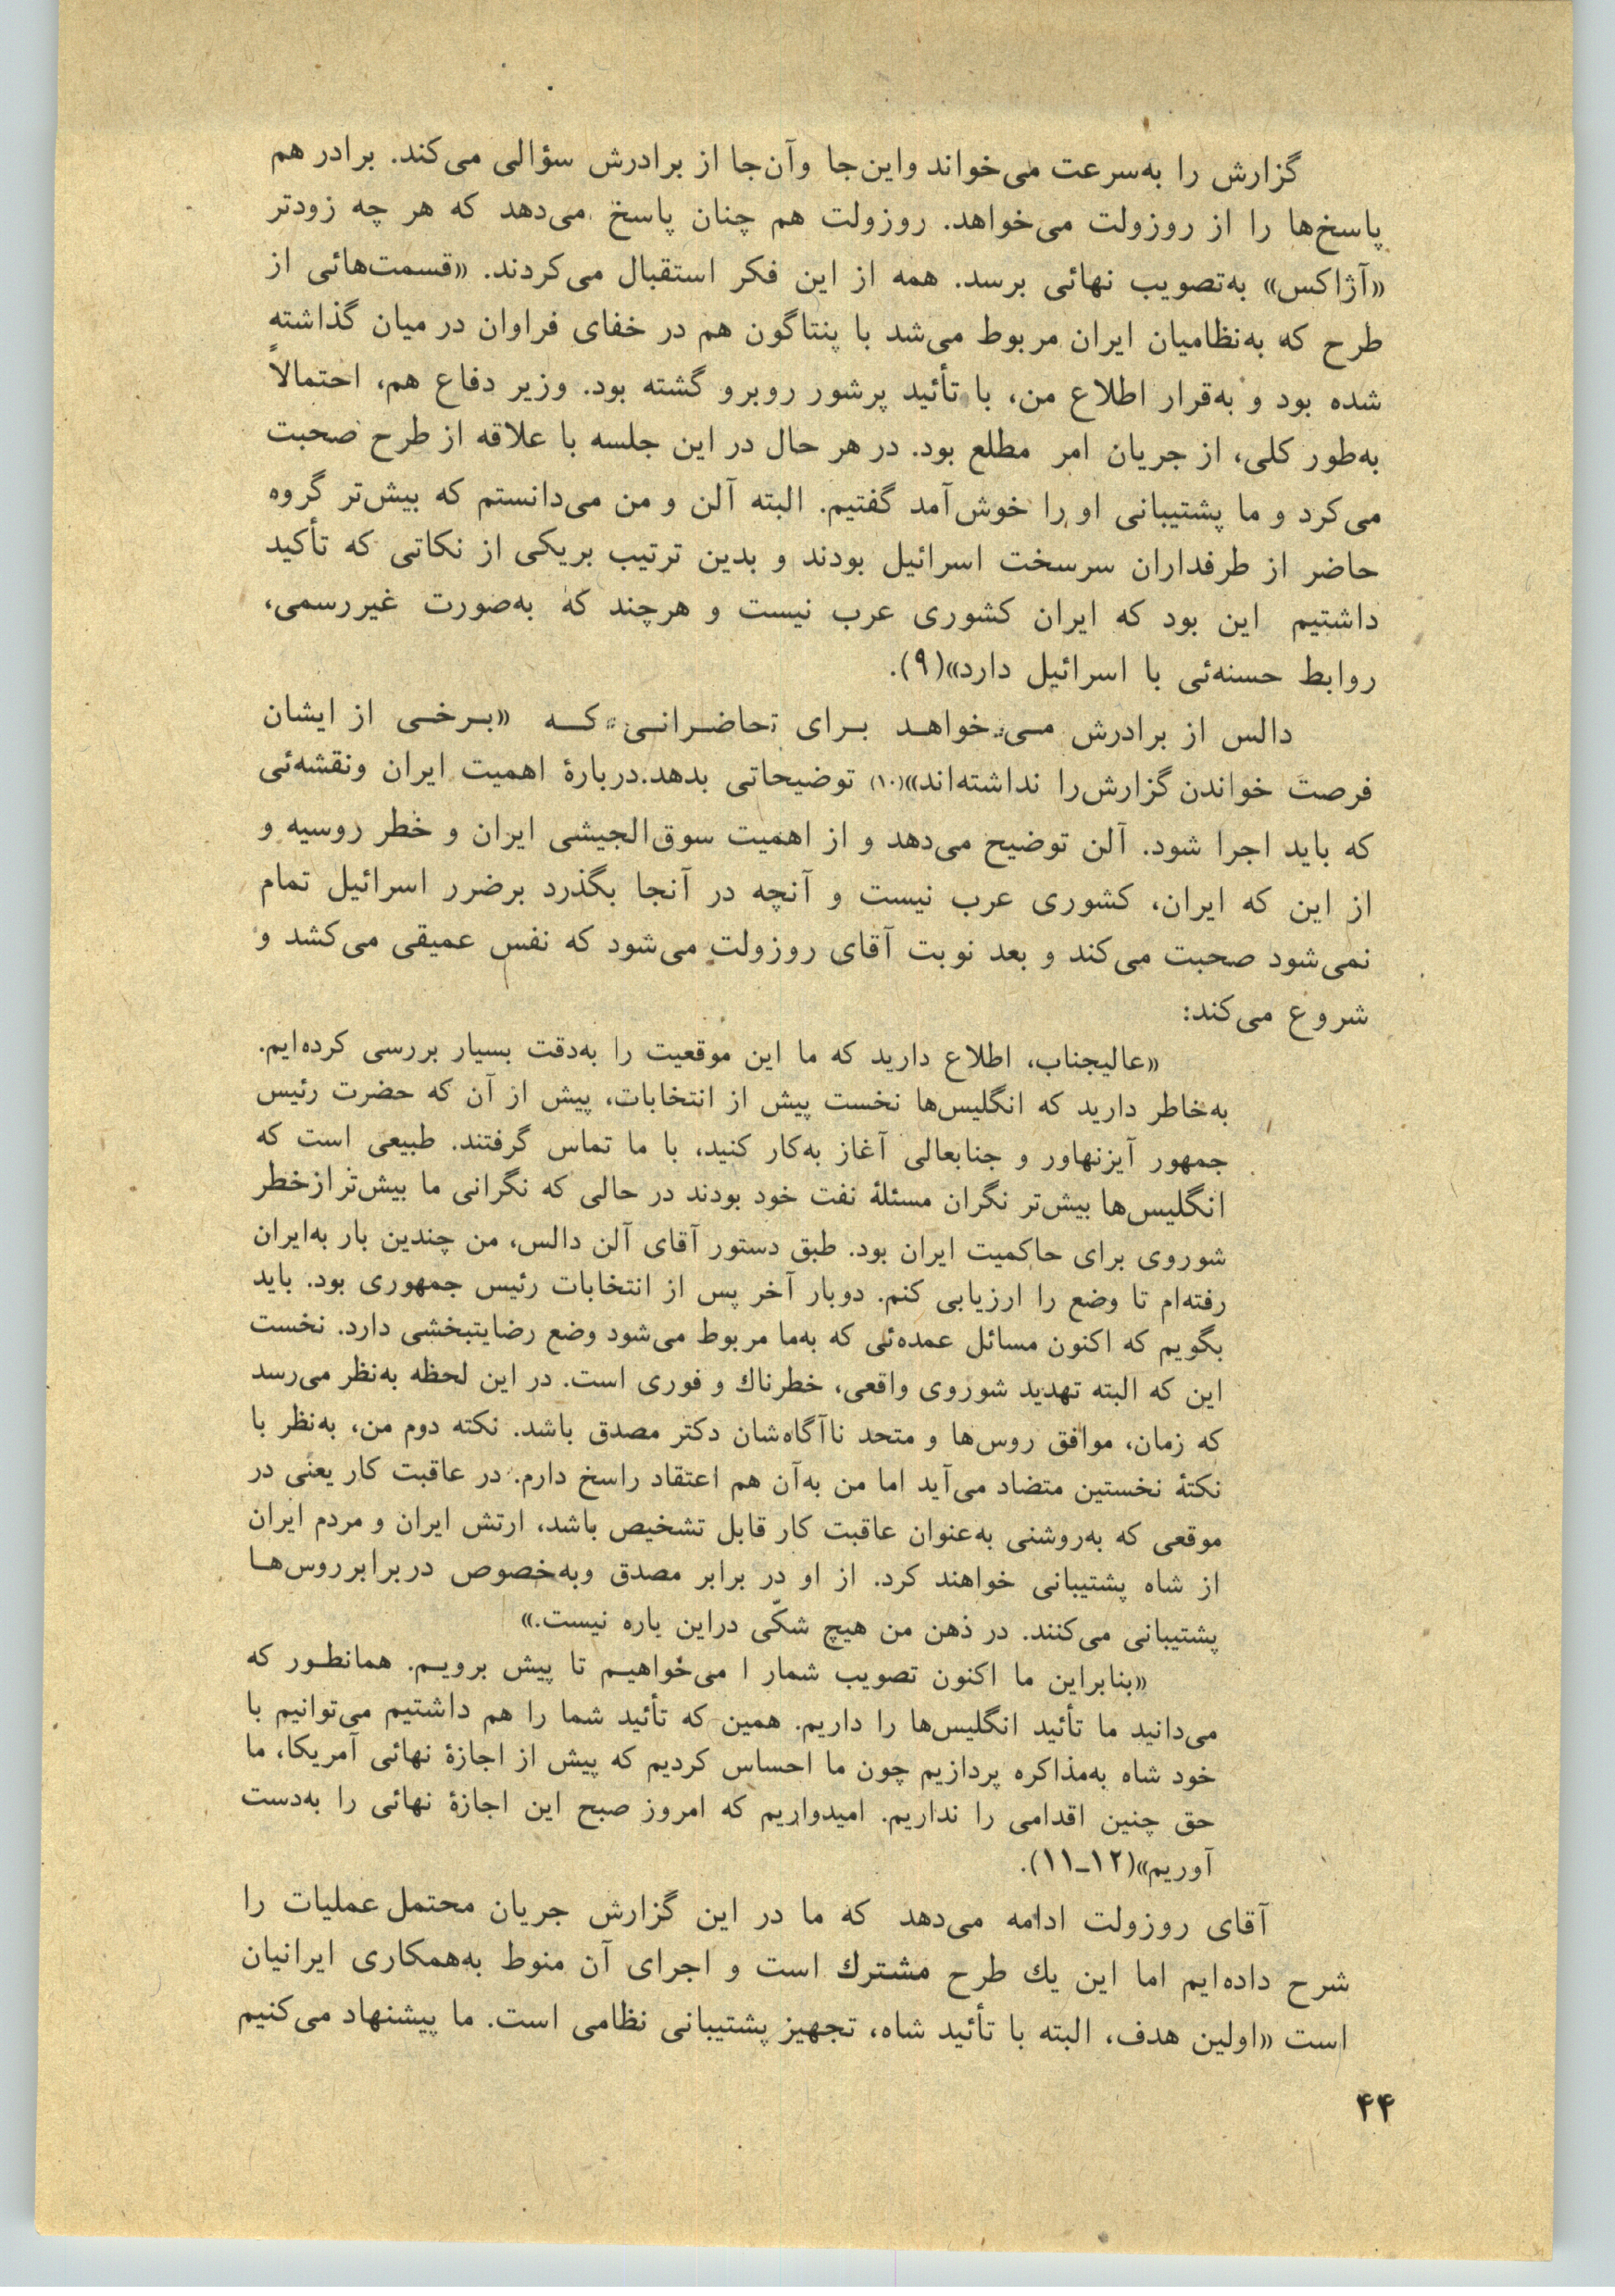 گزارش را به‌سرعت می‌خواند واین‌جا وآن‌جا از برادرش سؤالی می‌کند. برادر هم
پاسخ‌ها را از روزولت می‌خواهد. روزولت هم چنان پاسخ می‌دهد که هر چه زودتر
«آژاکس» به‌تصویب نهائی برسد. همه از این فکر استقبال می‌کردند. «قسمت‌هائی از
طرح که به‌نظامیان ایران مربوط می‌شد با پنتاگون هم در خفای فراوان در میان گذاشته
شده بود و به‌قرار اطلاع من، با تأئید پرشور روبرو گشته بود. وزیر دفاع هم، احتمالاً
به‌طور کلی، از جریان امر مطلع بود. در هر حال در این جلسه با علاقه از طرح صحبت
می‌کرد و ما پشتیبانی او را خوش‌آمد گفتیم. البته آلن و من می‌دانستم که بیش‌تر گروه
حاضر از طرفداران سرسخت اسرائیل بودند و بدین ترتیب بریکی از نکاتی که تأکید
داشتیم این بود که ایران کشوری عرب نیست و هرچند که به‌صورت غیررسمی،
روابط حسنه‌ئی با اسرائیل دارد»(۹).
دالس از برادرش می‌خواهد برای حاضرانی که «برخی از ایشان
فرصت خواندن گزارش‌را نداشته‌اند»(۱۰) توضیحاتی بدهد.دربارهٔ اهمیت ایران ونقشه‌ئی
که باید اجرا شود. آلن توضیح می‌دهد و از اهمیت سوق‌الجیشی ایران و خطر روسیه و
از این که ایران، کشوری عرب نیست و آنچه در آنجا بگذرد برضرر اسرائیل تمام
نمی‌شود صحبت می‌کند و بعد نوبت آقای روزولت می‌شود که نفس عمیقی می‌کشد و
شروع می‌کند:
«عالیجناب، اطلاع دارید که ما این موقعیت را به‌دقت بسیار بررسی کرده‌ایم.
به‌خاطر دارید که انگلیس‌ها نخست پیش از انتخابات، پیش از آن که حضرت رئیس
جمهور آیزنهاور و جنابعالی آغاز به‌کار کنید، با ما تماس گرفتند. طبیعی است که
انگلیس‌ها بیش‌تر نگران مسئلهٔ نفت خود بودند در حالی که نگرانی ما بیش‌تر ازخطر
شوروی برای حاکمیت ایران بود. طبق دستور آقای آلن دالس، من چندین بار به‌ایران
رفته‌ام تا وضع را ارزیابی کنم. دوبار آخر پس از انتخابات رئیس جمهوری بود. باید
بگویم که اکنون مسائل عمده‌ئی که به‌ما مربوط می‌شود وضع رضایتبخشی دارد. نخست
این که البته تهدید شوروی واقعی، خطرناك و فوری است. در این لحظه به‌نظر می‌رسد
که زمان، موافق روس‌ها و متحد ناآگاه‌شان دکتر مصدق باشد. نکته دوم من، به‌نظر با
نکتهٔ نخستین متضاد می‌آید اما من به‌آن هم اعتقاد راسخ دارم. در عاقبت کار یعنی در
موقعی که به‌روشنی به‌عنوان عاقبت کار قابل تشخیص باشد، ارتش ایران و مردم ایران
از شاه پشتیبانی خواهند کرد. از او در برابر مصدق وبه‌خصوص دربرابر روس‌ها
پشتیبانی می‌کنند. در ذهن من هیچ شکّی دراین باره نیست.»
«بنابراین ما اکنون تصویب شمار ا می‌خواهیم تا پیش برویم. همانطور که
می‌دانید ما تأئید انگلیس‌ها را داریم. همین که تأئید شما را هم داشتیم می‌توانیم با
خود شاه به‌مذاکره پردازیم چون ما احساس کردیم که پیش از اجازهٔ نهائی آمریکا، ما
حق چنین اقدامی را نداریم. امیدواریم که امروز صبح این اجازهٔ نهائی را به‌دست
آوریم»(۱۲ـ۱۱).
آقای روزولت ادامه می‌دهد که ما در این گزارش جریان محتمل عملیات را
شرح داده‌ایم اما این یك طرح مشترك است و اجرای آن منوط به‌همکاری ایرانیان
است «اولین هدف، البته با تأئید شاه، تجهیز پشتیبانی نظامی است. ما پیشنهاد می‌کنیم
۴۴